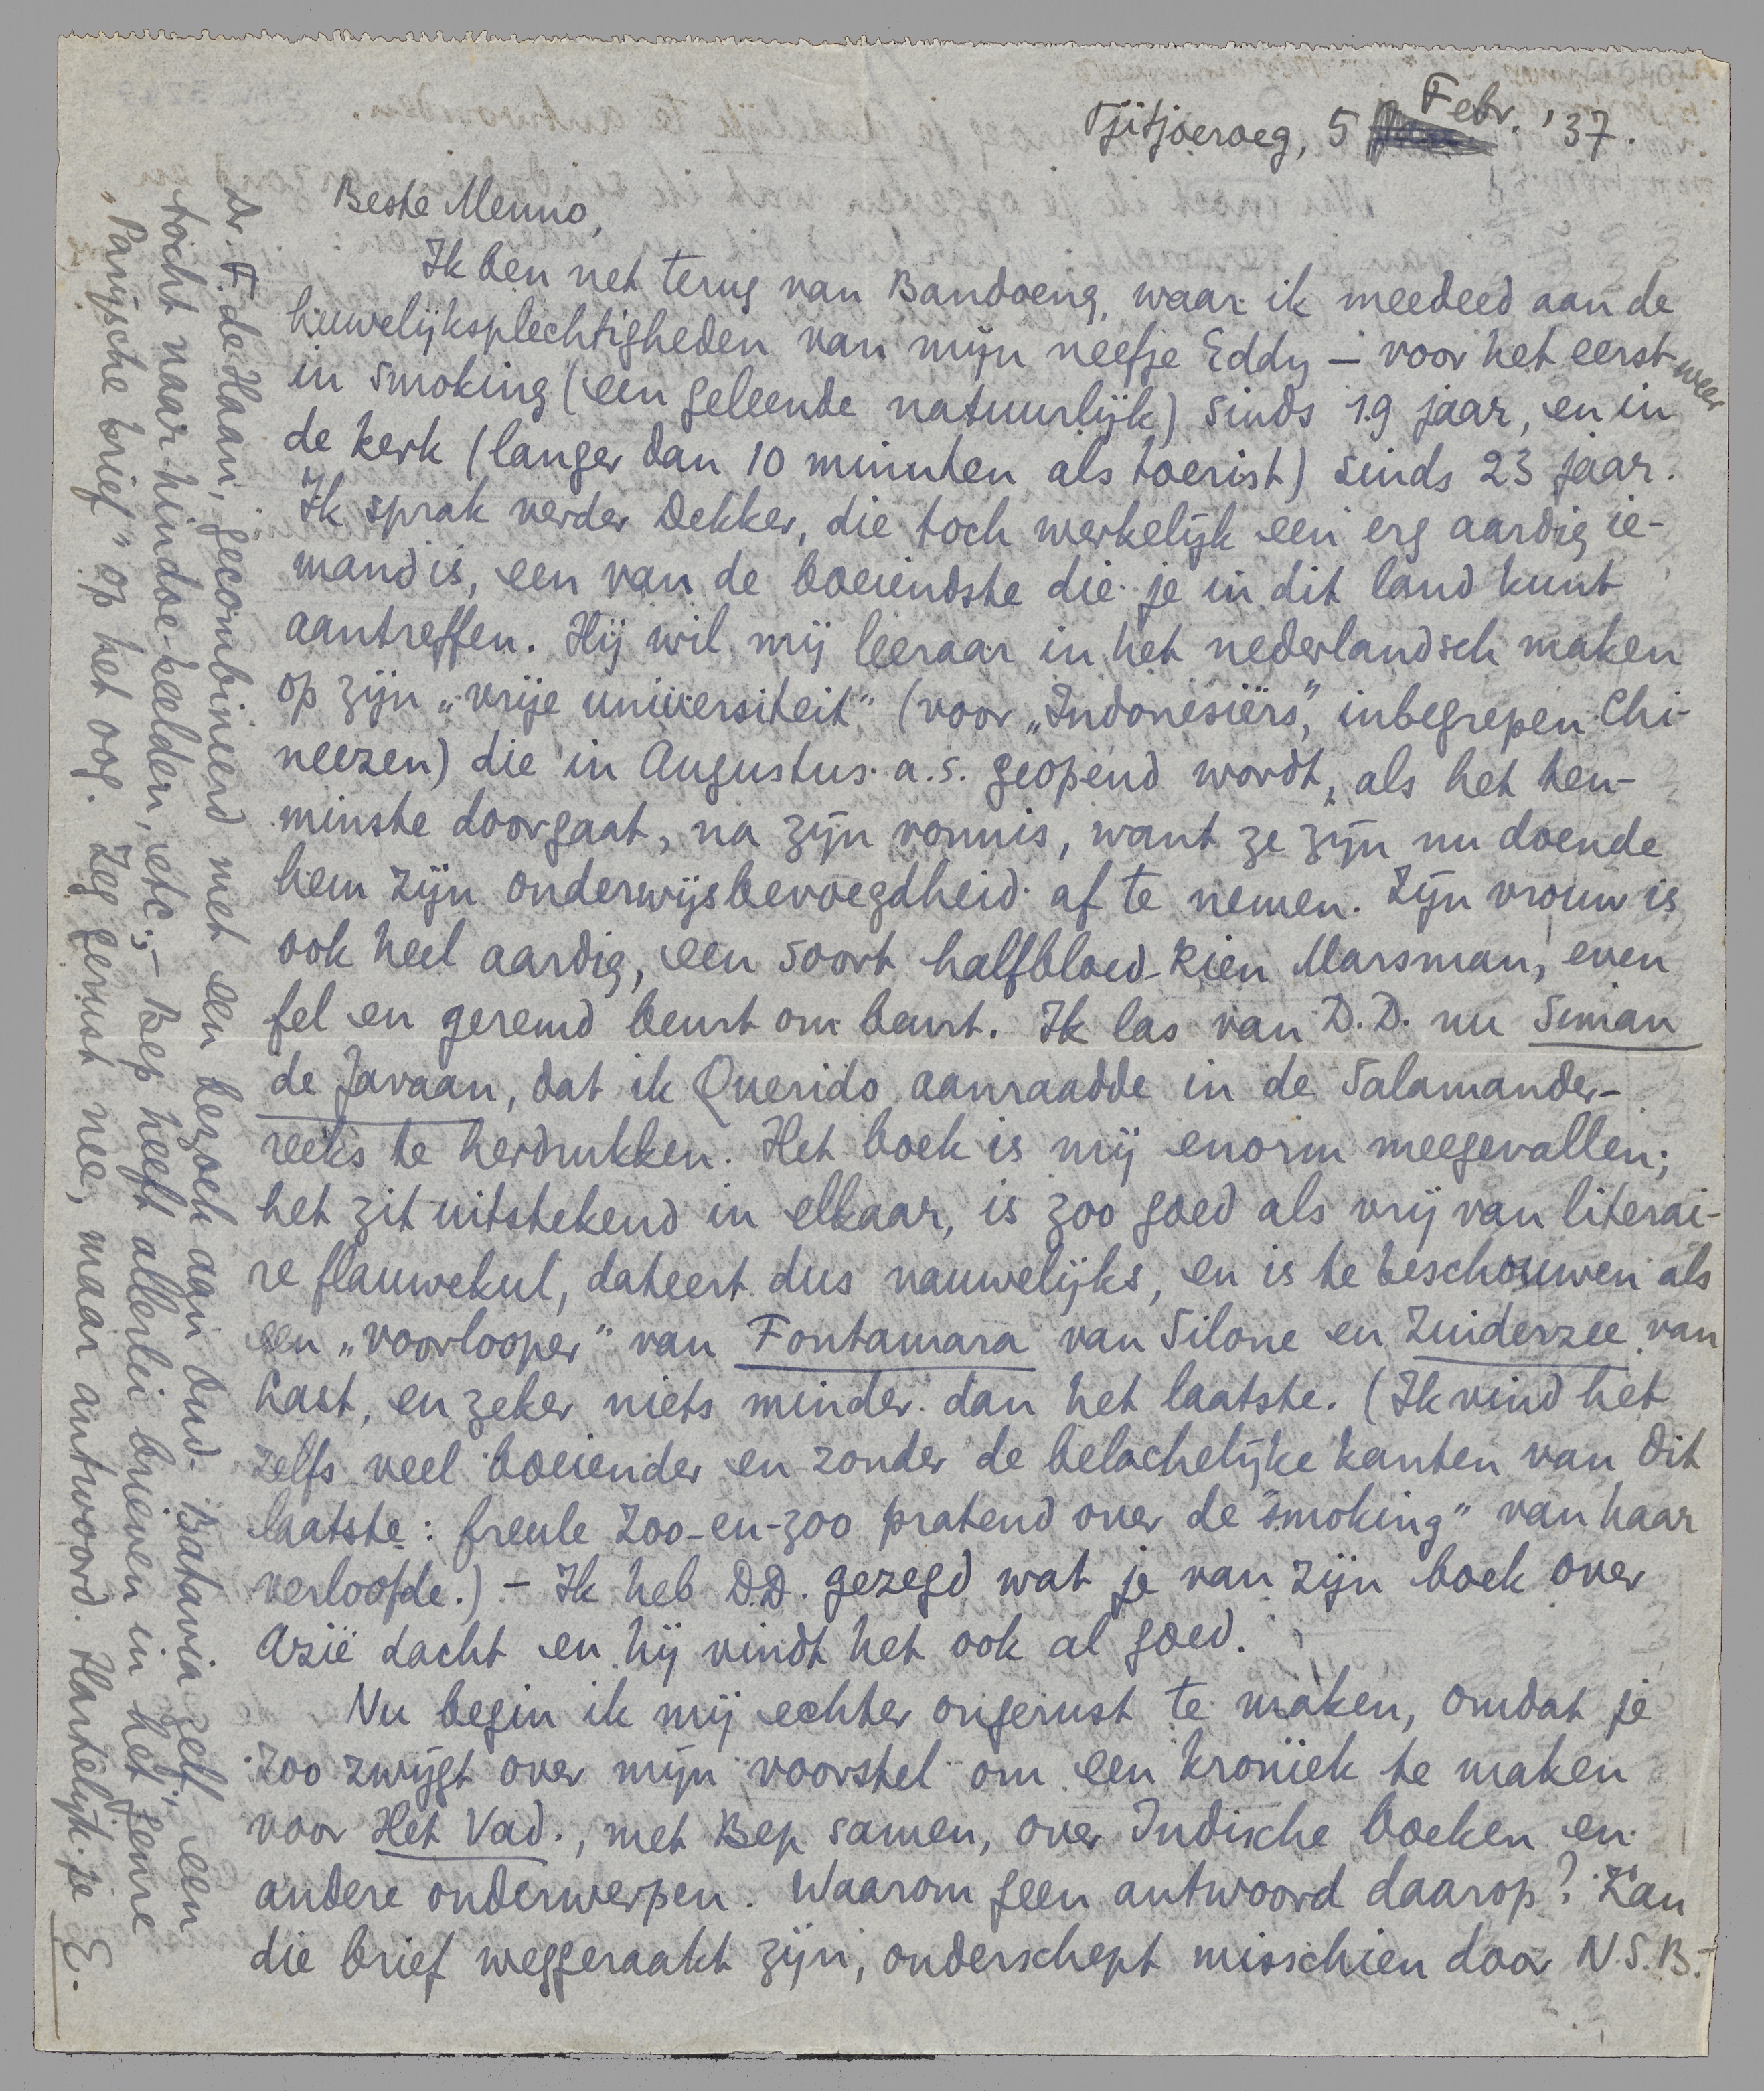 Tjitjoeroeg, 5 Febr. '37.
Beste Menno,
Ik ben net terug van Bandoeng, waar ik meedeed aan de
huwelijksplechtigheden van mijn neefje Eddy – voor het eerst weer
in smoking (een geleende natuurlijk) sinds 19 jaar, en in
de kerk (langer dan 10 minuten als toerist) sinds 23 jaar.
Ik sprak verder Dekker, die toch werkelijk een erg aardig ie-
mand is, een van de boeiendste die je in dit land kunt
aantreffen. Hij wil mij leeraar in het nederlandsch maken
op zijn „vrije universiteit" (voor „Indonesiërs", inbegrepen Chi-
neezen) die in Augustus a.s. geopend wordt, als het ten-
minste doorgaat, na zijn vonnis, want ze zijn nu doende
hem zijn onderwijsbevoegdheid af te nemen. Zijn vrouw is
ook heel aardig, een soort halfbloed-Rien Marsman, even
fel en geremd beurt om beurt. Ik las van D.D. nu Siman
de Javaan, dat ik Querido aanraadde in de Salamander-
reeks te herdrukken. Het boek is mij enorm meegevallen;
het zit uitstekend in elkaar, is zoo goed als vrij van literai-
re flauwekul, dateert dus nauwelijks, en is te beschouwen als
een „voorlooper" van Fontamara van Silone en Zuiderzee van
Last, en zeker niets minder dan het laatste. (Ik vind het
zelfs veel boeiender en zonder de belachelijke kanten van dit
laatste: freule Zoo-en-zoo pratend over de "smoking" van haar
verloofde.) – Ik heb D.D. gezegd wat je van zijn boek over
Azië dacht en hij vindt het ook al goed.
Nu begin ik mij echter ongerust te maken, omdat je
zoo zwijgt over mijn voorstel om een kroniek te maken
voor Het Vad., met Bep samen, over Indische boeken en
andere onderwerpen. Waarom geen antwoord daarop? Kan
die brief weggeraakt zijn, onderschept misschien door N.S.B.-
Dr. F. de Haan, gecombineerd met een bezoek aan Oud-Batavia zelf; een
tocht naar hindoe-beelden, etc; – Bep heeft allerlei brieven in het genre
„Parijsche brief" op het oog. Zeg gerust nee, maar antwoord. Hartelijk je E.